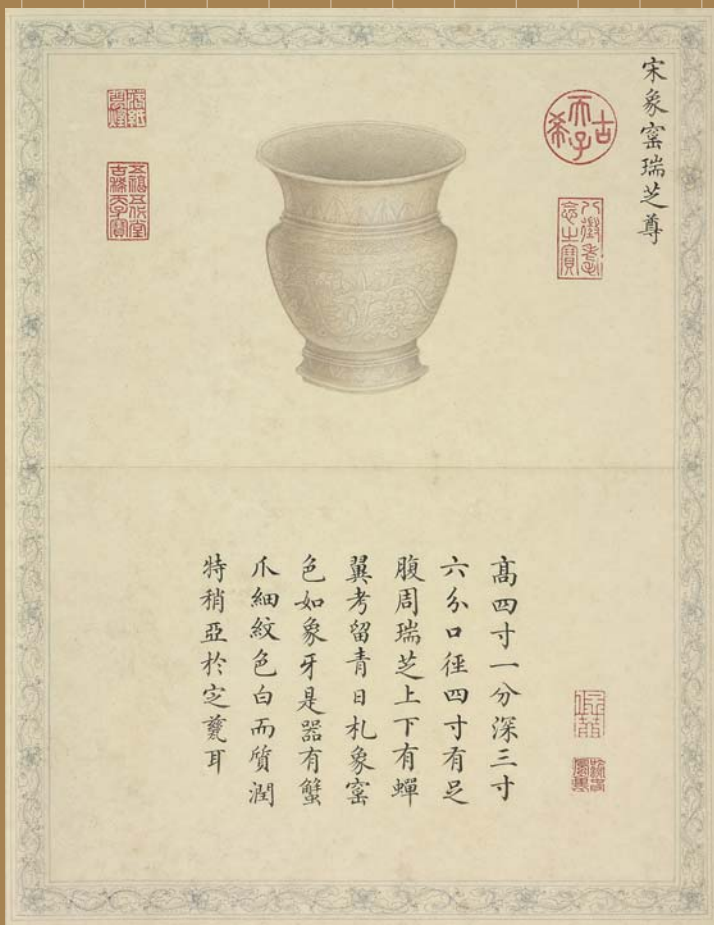 宋象窰瑞芝尊
古希天子
八徵耄念之寶
五福五代堂古稀天子寶
髙四寸一分深三寸
六分口徑四寸有足
腹周瑞芝上下有蟬
翼考留青日札象窰
色如象牙是器有蟹
爪細紋色白而質潤
特稍亞於㝎甆耳